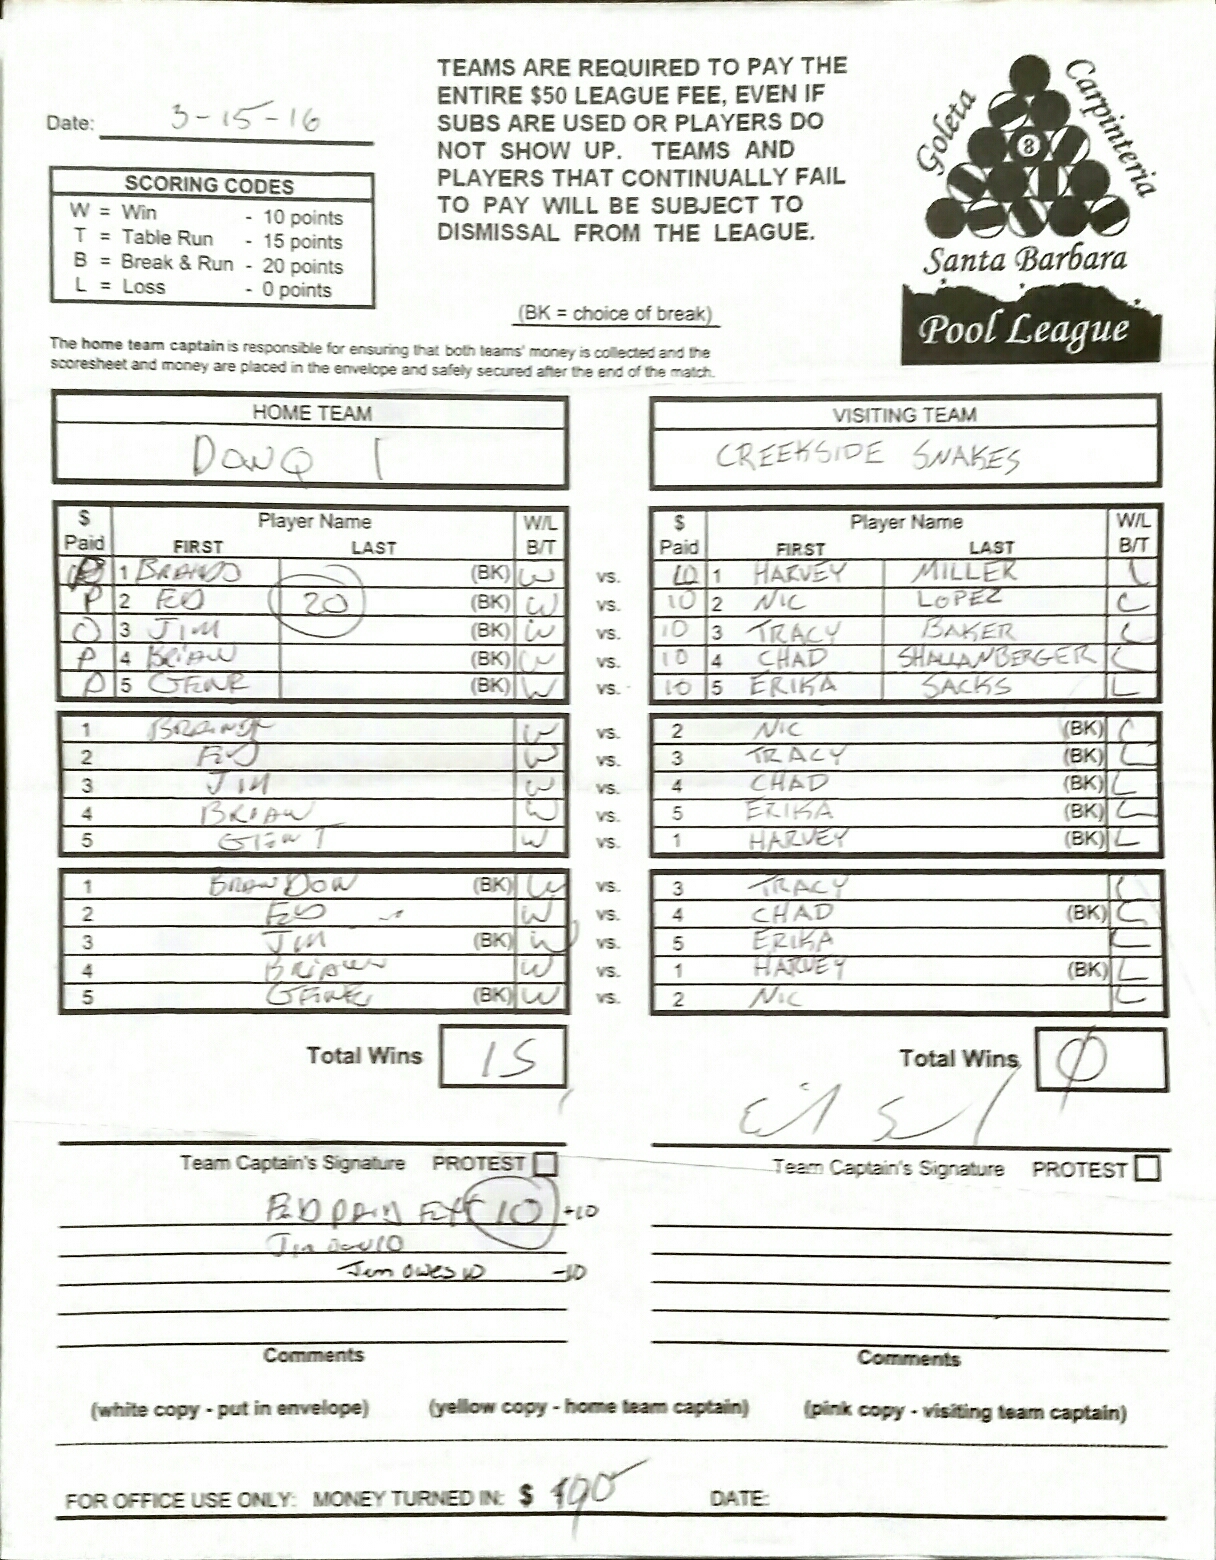 TEAMS ARE REQUIRED TO PAY THE
ENTIRE $50 LEAGUE FEE, EVEN IF
SUBS ARE USED OR PLAYERS DO
NOT SHOW UP. TEAMS AND
PLAYERS THAT CONTINUALLY FAIL
TO PAY WILL BE SUBJECT TO
DISMISSAL FROM THE LEAGUE.
Date: 3-15-16
SCORING CODES
W = Win - 10 points
T = Table Run - 15 points
B = Break & Run - 20 points
L = Loss - 0 points
Goleta
Carpinteria
8
Santa Barbara
Pool League
(BK = choice of break)
The home team captain is responsible for ensuring that both teams' money is collected and the
scoresheet and money are placed in the envelope and safely secured after the end of the match.
HOME TEAM VISITING TEAM
CREEKSIDE SNAKES
$ Paid Player Name FIRST LAST W/L B/T $ Paid Player Name FIRST LAST W/L B/T
1 (BK) W vs. 10 1 HARVEY MILLER L
P 2 ED 20 (BK) W vs. 10 2 NIC LOPEZ L
3 JIM (BK) W vs. 10 3 TRACY BAKER L
P 4 BRIAN (BK) W vs. 10 4 CHAD SHALLANBERGER L
P 5 (BK) W vs. 10 5 ERIKA SACKS L
1 W vs. 2 NIC (BK) L
2 ED W vs. 3 TRACY (BK) L
3 JIM W vs. 4 CHAD (BK) L
4 BRIAN W vs. 5 ERIKA (BK) L
5 W vs. 1 HARVEY (BK) L
1 BRANDON (BK) W vs. 3 TRACY L
2 ED W vs. 4 CHAD (BK) L
3 JIM (BK) W vs. 5 ERIKA L
4 BRIAN W vs. 1 HARVEY (BK) L
5 (BK) W vs. 2 NIC L
Total Wins 15 Total Wins 0
Team Captain's Signature PROTEST Team Captain's Signature PROTEST
10 +10
Jim owes 10 -10
Comments Comments
(white copy - put in envelope) (yellow copy - home team captain) (pink copy - visiting team captain)
FOR OFFICE USE ONLY: MONEY TURNED IN: $ DATE: